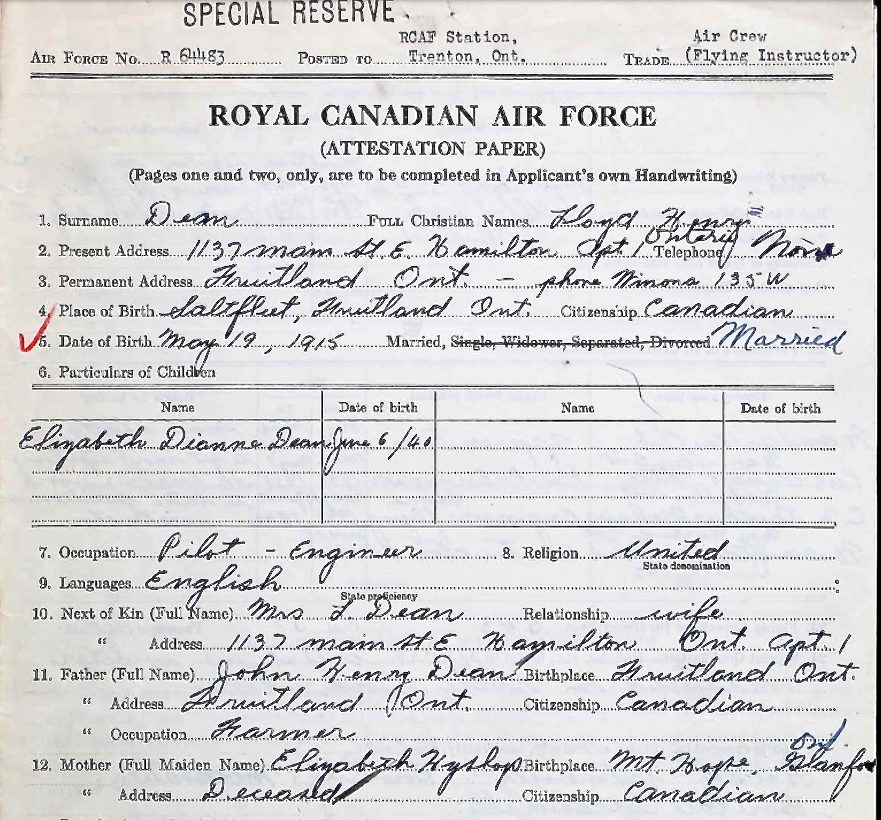 SPECIAL RESERVE.
RCAF Station, Air Crew
AIR FORCE NO. R 64483 POSTED TO Trenton, Ont. TRADE (Flying Instructor)
ROYAL CANADIAN AIR FORCE
(ATTESTATION PAPER)
(Pages one and two, only, are to be completed in Applicant's own Handwriting)
1. Surname Dean FULL Christian Names Lloyd Henry
Ontario
2. Present Address 1137 main St E. Hamilton Apt 1 Telephone None
3. Permanent Address Fruitland Ont. - phone Winona 135W
4. Place of Birth Saltfleet, Fruitland Ont. Citizenship Canadian
5. Date of Birth May 19, 1915 Married, Single, Widower, Separated, Divorced Married
6. Particulars of Children
Name Date of birth Name Date of birth
Elizabeth Dianne Dean June 6/40
7. Occupation Pilot - Engineer 8. Religion United
State denomination
9. Languages English
State proficiency
10. Next of Kin (Full Name) Mrs L. Dean Relationship wife
" Address 1137 main St E Hamilton Ont. Apt. 1
11. Father (Full Name) John Henry Dean Birthplace Fruitland Ont.
" Address Fruitland Ont. Citizenship Canadian
" Occupation Farmer
12. Mother (Full Maiden Name) Elizabeth Hyslop Birthplace Mt. Hope,
" Address Deceased Citizenship Canadian